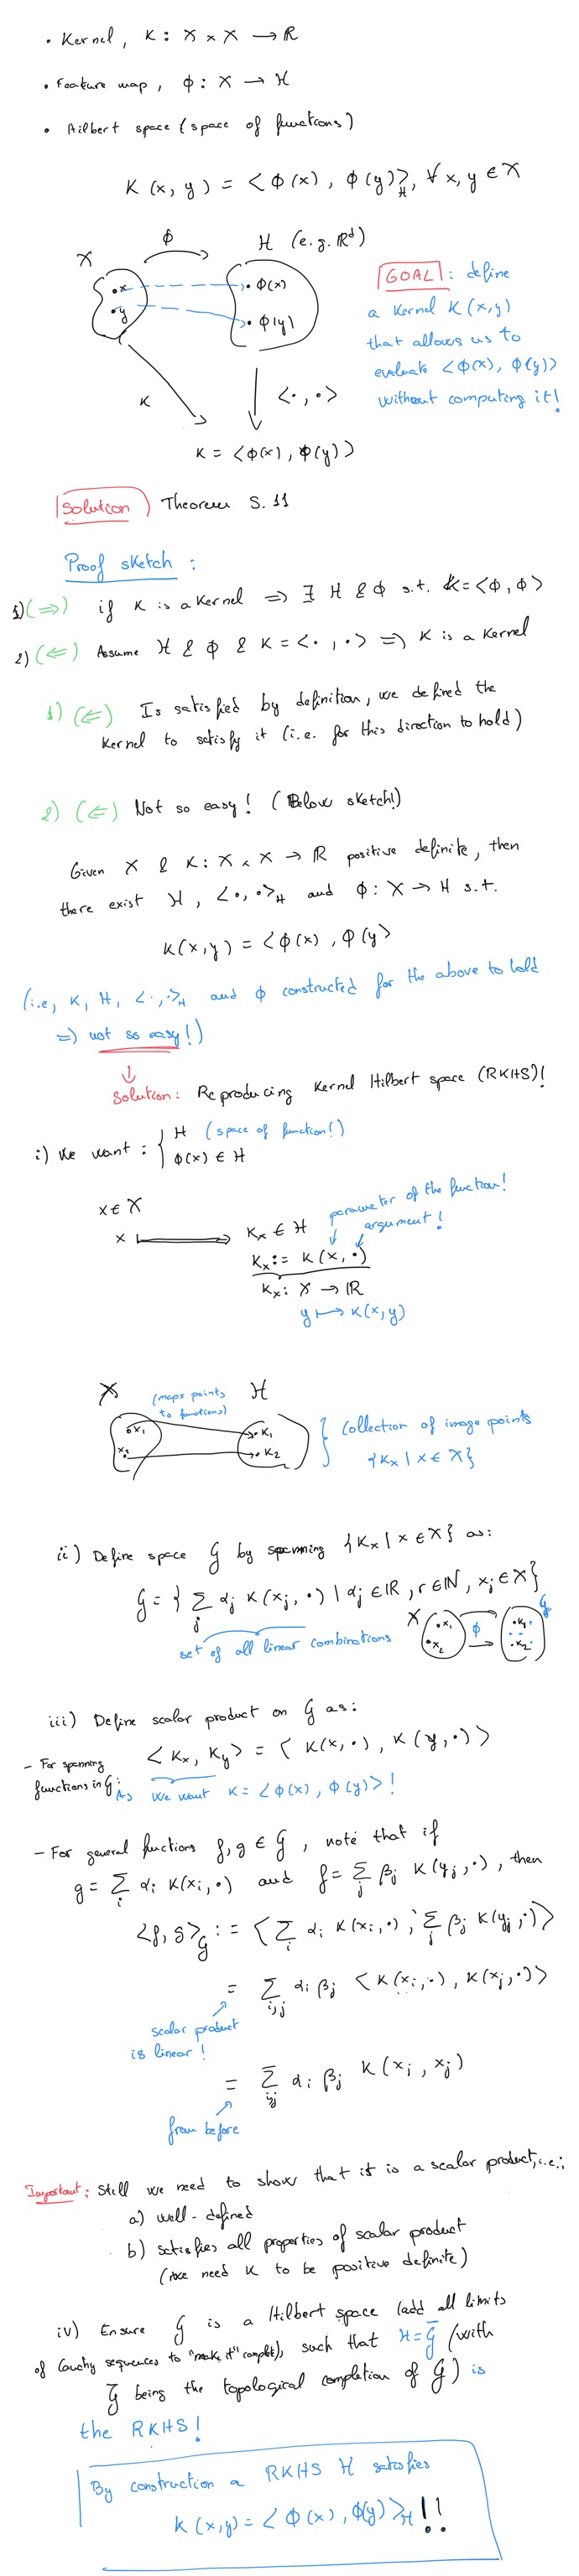 • Kernel, K : X × X → ℝ
• Feature map, ϕ : X → H
• Hilbert space (space of functions)
K (x, y) = < ϕ(x), ϕ(y)>_H, ∀ x, y ∈ X
ϕ
H (e.g. ℝᵈ)
X
• x
• ϕ(x)
• y
• ϕ(y)
GOAL : define
a Kernel K(x,y)
that allows us to
evaluate <ϕ(x), ϕ(y)>
without computing it!
K
< • , • >
K = <ϕ(x), ϕ(y)>
Solution) Theorem S. 11
Proof sketch :
1) (⇒) if K is a Kernel ⇒ ∃ H & ϕ s.t. K = <ϕ, ϕ>
2) (⇐) Assume H & ϕ & K = < • , • > ⇒ K is a Kernel
1) (⇐) Is satisfied by definition, we defined the
Kernel to satisfy it (i.e. for this direction to hold)
2) (⇐) Not so easy! (Below sketch!)
Given X & K : X × X → ℝ positive definite, then
there exist H, < • , • >_H and ϕ : X → H s.t.
K(x,y) = <ϕ(x), ϕ(y)>
(i.e, K, H, < • , • >_H and ϕ constructed for the above to hold
⇒ not so easy!)
Solution: Reproducing Kernel Hilbert space (RKHS)!
i) We want : { H (space of function!)
ϕ(x) ∈ H
x ∈ X
parameter of the function!
argument!
x ↦ Kx ∈ H
Kx := K(x, •)
Kx : X → ℝ
y ↦ K(x,y)
X (maps points H
to functions)
• x₁ • K₁
x₂ • K₂
} collection of image points
{Kx | x ∈ X}
ii) Define space G by spanning {Kx | x ∈ X} as:
G = { Σ_j αj K(xj, •) | αj ∈ ℝ, r ∈ ℕ, xj ∈ X}
set of all linear combinations
X • x₁ • x₂ ϕ • K₁ • K₂ G
iii) Define scalar product on G as:
- For spanning
functions in G:
< Kx, Ky > = < K(x, •), K(y, •) >
As we want K = <ϕ(x), ϕ(y)> !
- For general functions f, g ∈ G, note that if
g = Σ_i αi K(xi, •) and f = Σ_j βj K(yj, •), then
<f, g>_G := < Σ_i αi K(xi, •), Σ_j βj K(yj, •) >
= Σ_i,j αi βj < K(xi, •), K(xj, •) >
scalar product
is linear!
= Σ_ij αi βj K(xi, xj)
from before
Important: Still we need to show that it is a scalar product, i.e.:
a) well-defined
b) satisfies all properties of scalar product
need K to be positive definite)
iv) Ensure G is a Hilbert space (add all limits
of Cauchy sequences to "make it" complet), such that H = G̅ (with
G̅ being the topological completion of G) is
the RKHS!
By construction a RKHS H satisfies
K(x,y) = < ϕ(x), ϕ(y) >_H !!